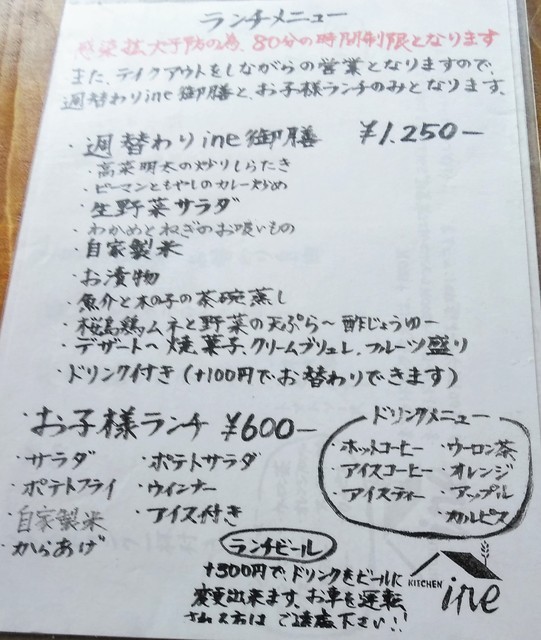 ランチメニュー
感染拡大予防の為、80分の時間制限となります
また、テイクアウトをしながらの営業となりますので、
週替わりine御膳と、お子様ランチのみとなります。
・週替わりine御膳 ¥1.250-
・高菜明太の炒りしらたき
・ピーマンともやしのカレー炒め
・生野菜サラダ
・わかめとねぎのお吸いもの
・自家製米
・お漬物
・魚介と木の子の茶碗蒸し
・桜島鶏ムネと野菜の天ぷら〜酢じょうゆ〜
・デザート〜焼菓子、クリームブリュレ、フルーツ盛り
・ドリンク付き(+100円でお替わりできます)
・お子様ランチ ¥600-
・サラダ ・ポテトサラダ
・ポテトフライ ・ウィンナー
・自家製米 ・アイス付き
・からあげ
ドリンクメニュー
・ホットコーヒー ・ウーロン茶
・アイスコーヒー ・オレンジ
・アイスティー ・アップル
・カルピス
ランチビール
+500円で、ドリンクをビールに
変更出来ます。お車を運転
される方はご遠慮下さい!!
KITCHEN ine